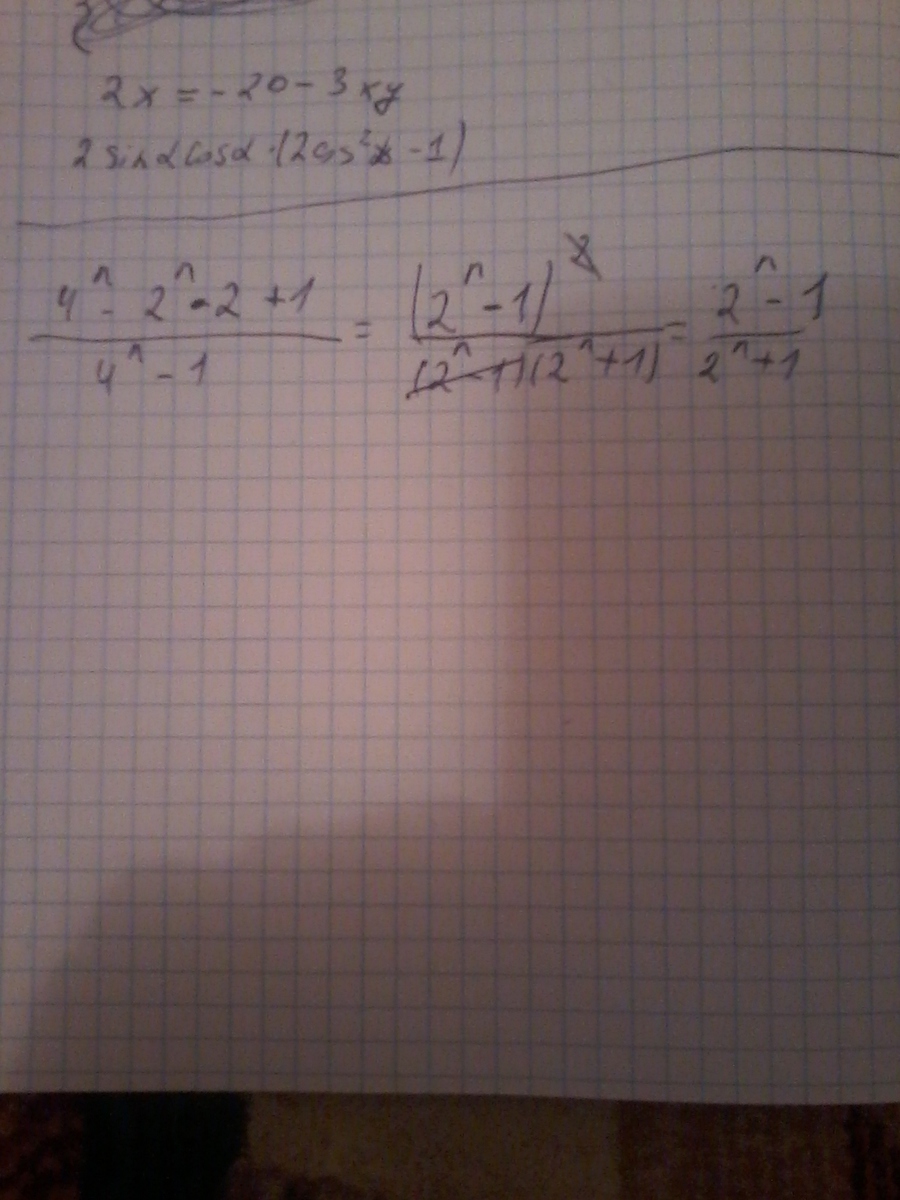 2x = -20 - 3xy
2 sinα cosα · (2cos²α - 1)
(4ⁿ - 2ⁿ·2 + 1)/(4ⁿ - 1) = (2ⁿ - 1)²/((2ⁿ - 1)(2ⁿ + 1)) = (2ⁿ - 1)/(2ⁿ + 1)